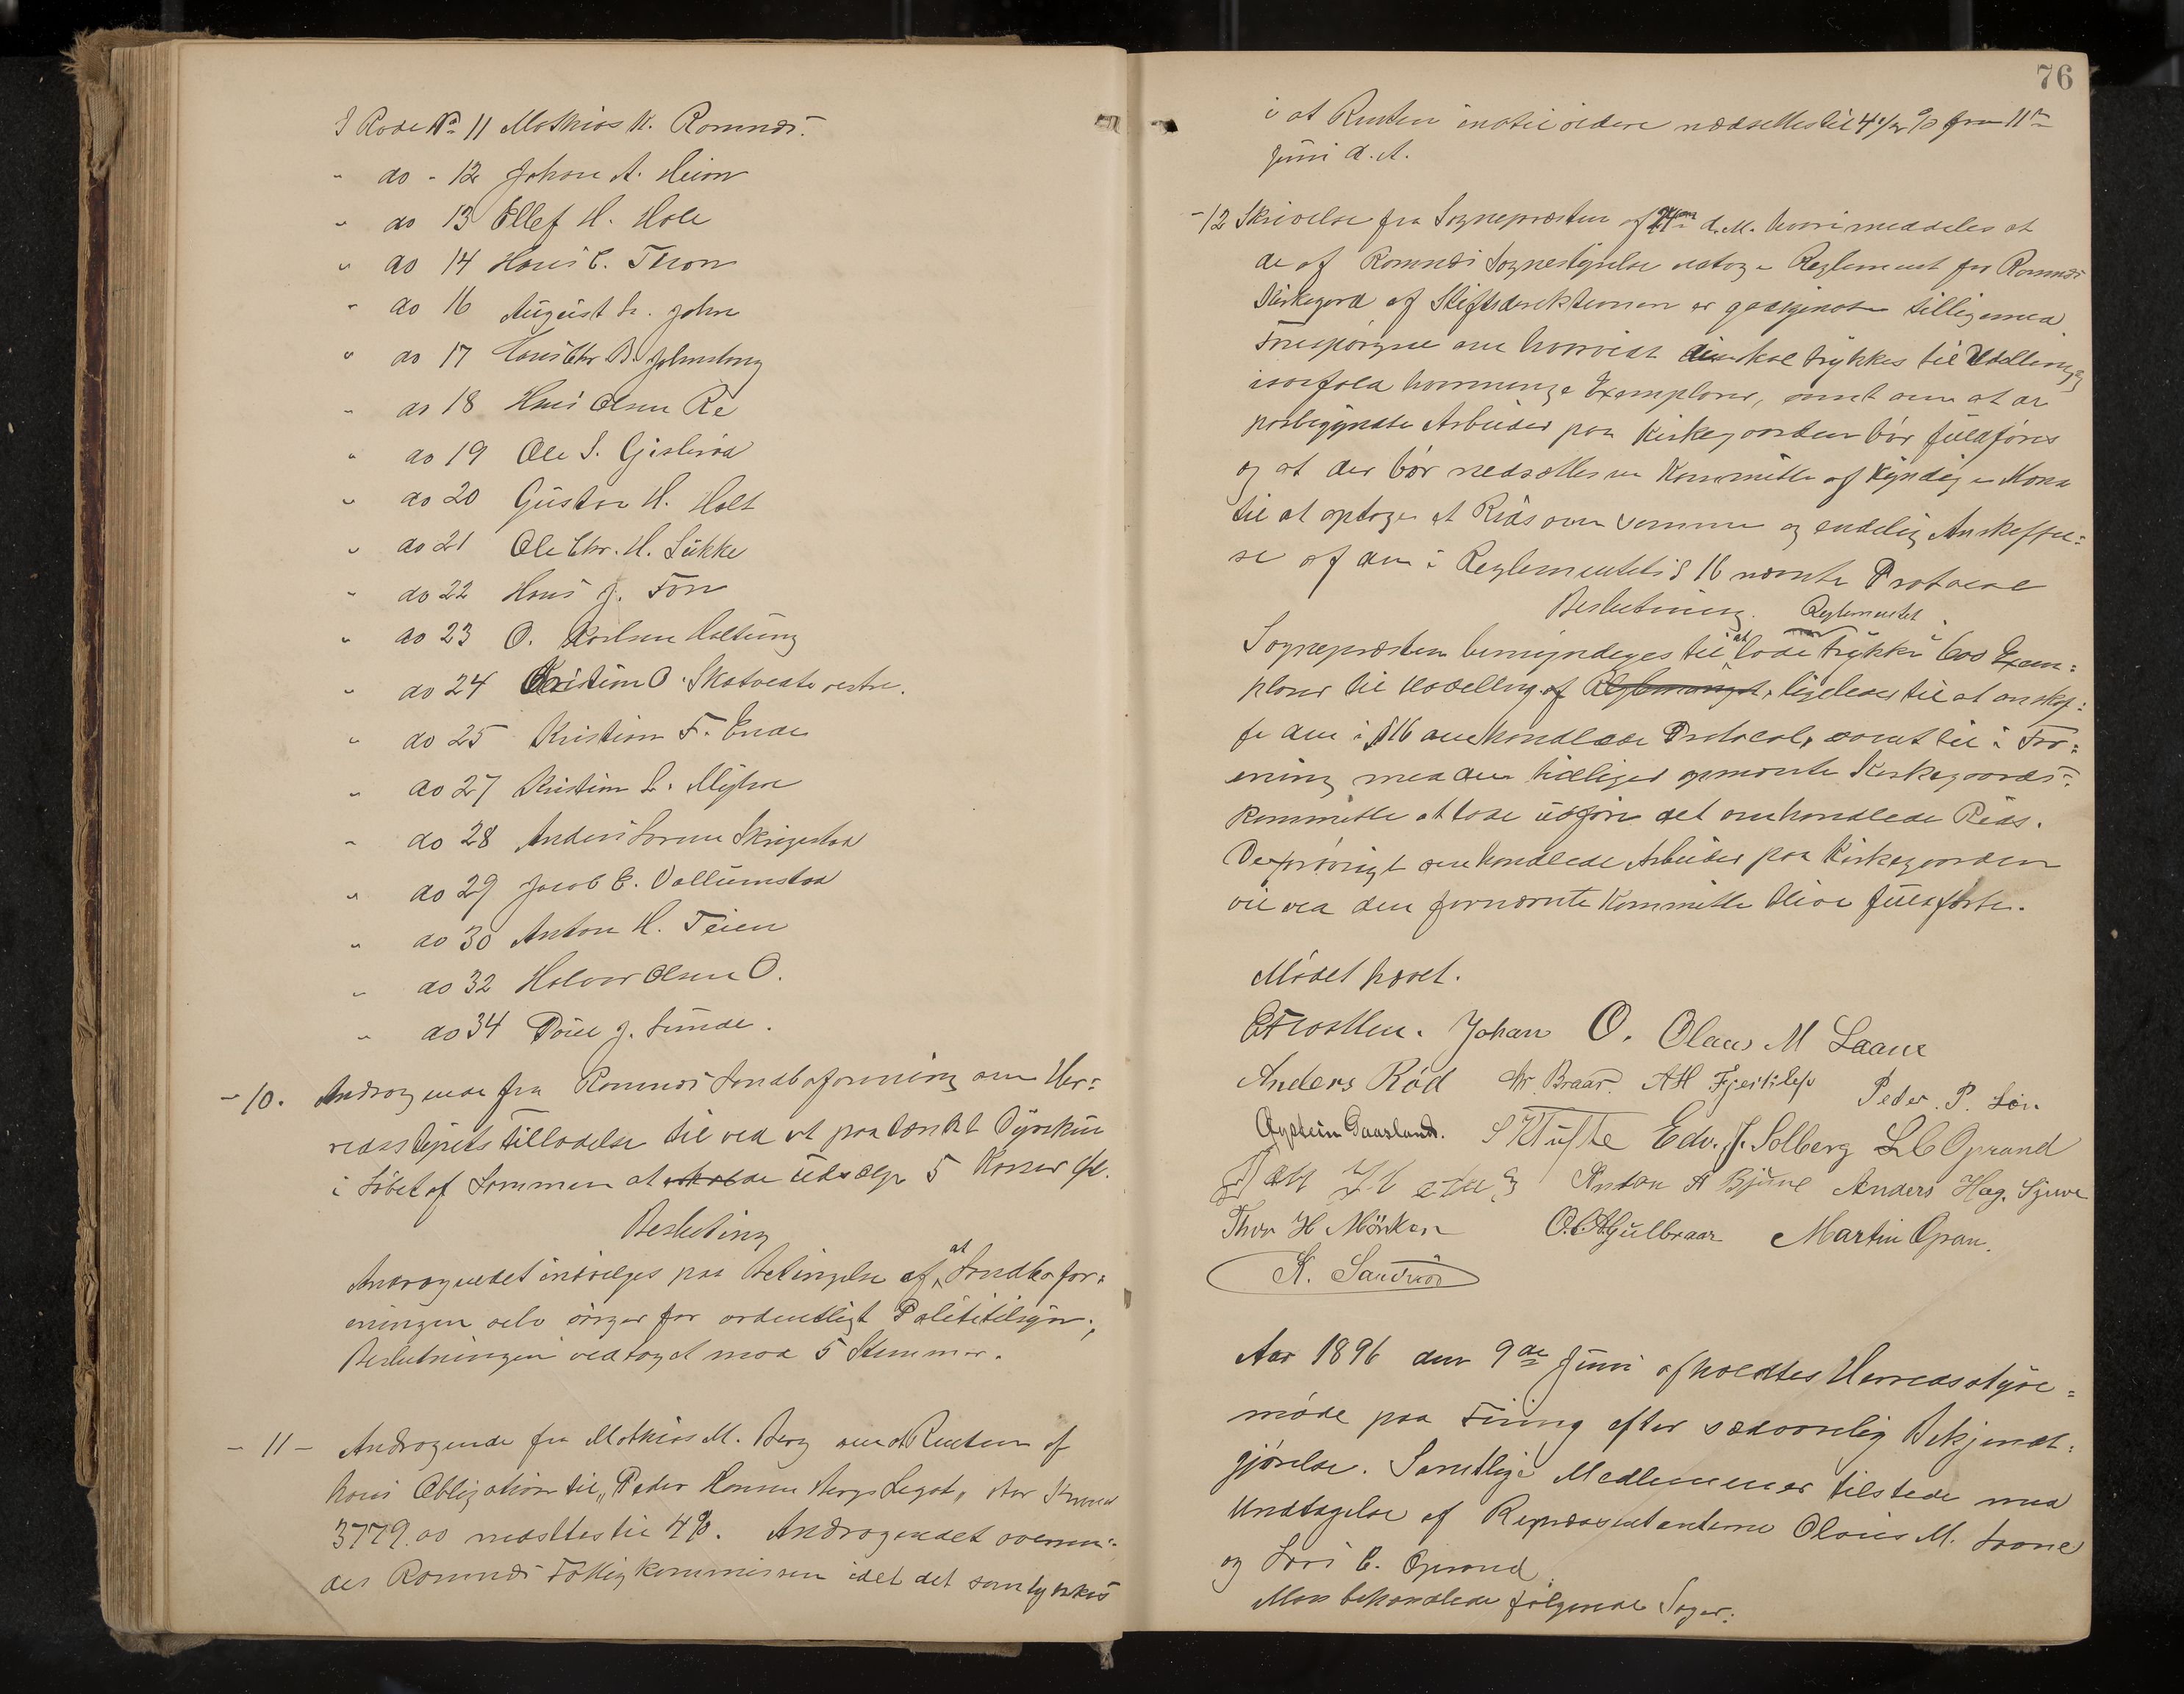 I Rode No 11 Mathias K. Romnæs.
" do - 12 Johan A. Heian
" do 13 Ellef H. Hole
" do 14 Hans C. Thon
" do 16 August H. Jahn
" do 17 Hans Chr. B. Holmslung
" do 18 Hans Olsen Re
" do 19 Ole S. Gislerød
" do 20 Gustav H. Holt
" do 21 Ole Chr. H. Lukke
" do 22 Hans J. Fön
" do 23 O. Karlsen Holtung
" do 24 Kristian O. Skatvedt vestre.
" do 25 Kristian F. Enda
" do 27 Kristian L. Myhra
" do 28 Anders Larsen Skrigestad
" do 29 Jacob E. Vallumstad
" do 30 Anton H. Teien
" do 32 Halvor Olsen O.
" do 34 Poul J. Sunde.
- 10. Andragende fra Romnæs Landboforening om Her=
redsstyrets tilladelse til ved et paatænkt Dyrskue
i Løbet af Sommeren at udsælge 5 Kasser Øl.
Beslutning
Andragendet indvilges paa Betingelse af at Landbofor=
eningen selv sørger for ordentligt Polititilsyn.,
Beslutningen vedtaget mod 5 Stemmer.
- 11 - Andragende fra Mathias M. Berg om at Renten af
hans Obligation til "Peder Hansen Bergs Legat" stor Kroner
3779.00 nedsættes til 4%. Andragendet oversen=
des Romnæs Fattigkommission idet det samtykkes
76
i at Renten indtil videre nedsættes til 4 1/2 % fra 11te
Juni d. A.
- 12 Skrivelse fra Sognepresten af d. M. hvori meddeles at
de af Romnæs Sognestyrelse vedtagne Reglement for Romnæs
Kirkegård af Stiftsdirektionen er godkjendt tilligemed
Forespørgsel om hvorvidt disse skal trykkes til Uddeling og
isaafald hvormange Exemplarer, samt om at de
paabegyndte Arbeider paa Kirkegaarden bør fuldføres
og at der bør nedsættes en Kommitte af kyndige Mænd
til at optage et Rids over samme og endelig Anskaffel=
se af den i Reglementets § 16 nævnte Protocol
Beslutning. Reglementet
Sognepresten bemyndiges til at lade trykke i 600 Exem=
plarer til Uddeling af Reglementet, ligeledes til at anskaf=
fe den i § 16 omhandlede Protocol, samt til i For=
ening med den tidligere opnævnte Kirkegaards=
kommitte at lade udføre det omhandlede Rids.
De forøvrigt omhandlede Arbeider paa Kirkegaarden
vil ved den fornævnte Kommitte blive fuldførte.
Mødet hævet.
Johan O. Olaus M Laane
Anders Rød Chr. Braar. AH Fjeldalen Peder. P. Lia.
Øystein Gaasland. S K Tufte Edv. J. Solberg L C Oprand
Anton A Bjerve Anders Hag. Sjuve
Thor H Mörken O.C.A Gulbraar Martin Opran.
K. Sandnæs
Aar 1896 den 9de Juni afholdtes Herredsstyre=
møde paa Fining efter sædvanlig Bekjendt=
gjørelse. Samtlige Medlemmer tilstede med
Undtagelse af Repræsentanterne Olaus M. Laane
og Lars C. Oprand.
Man behandlede følgende Sager: